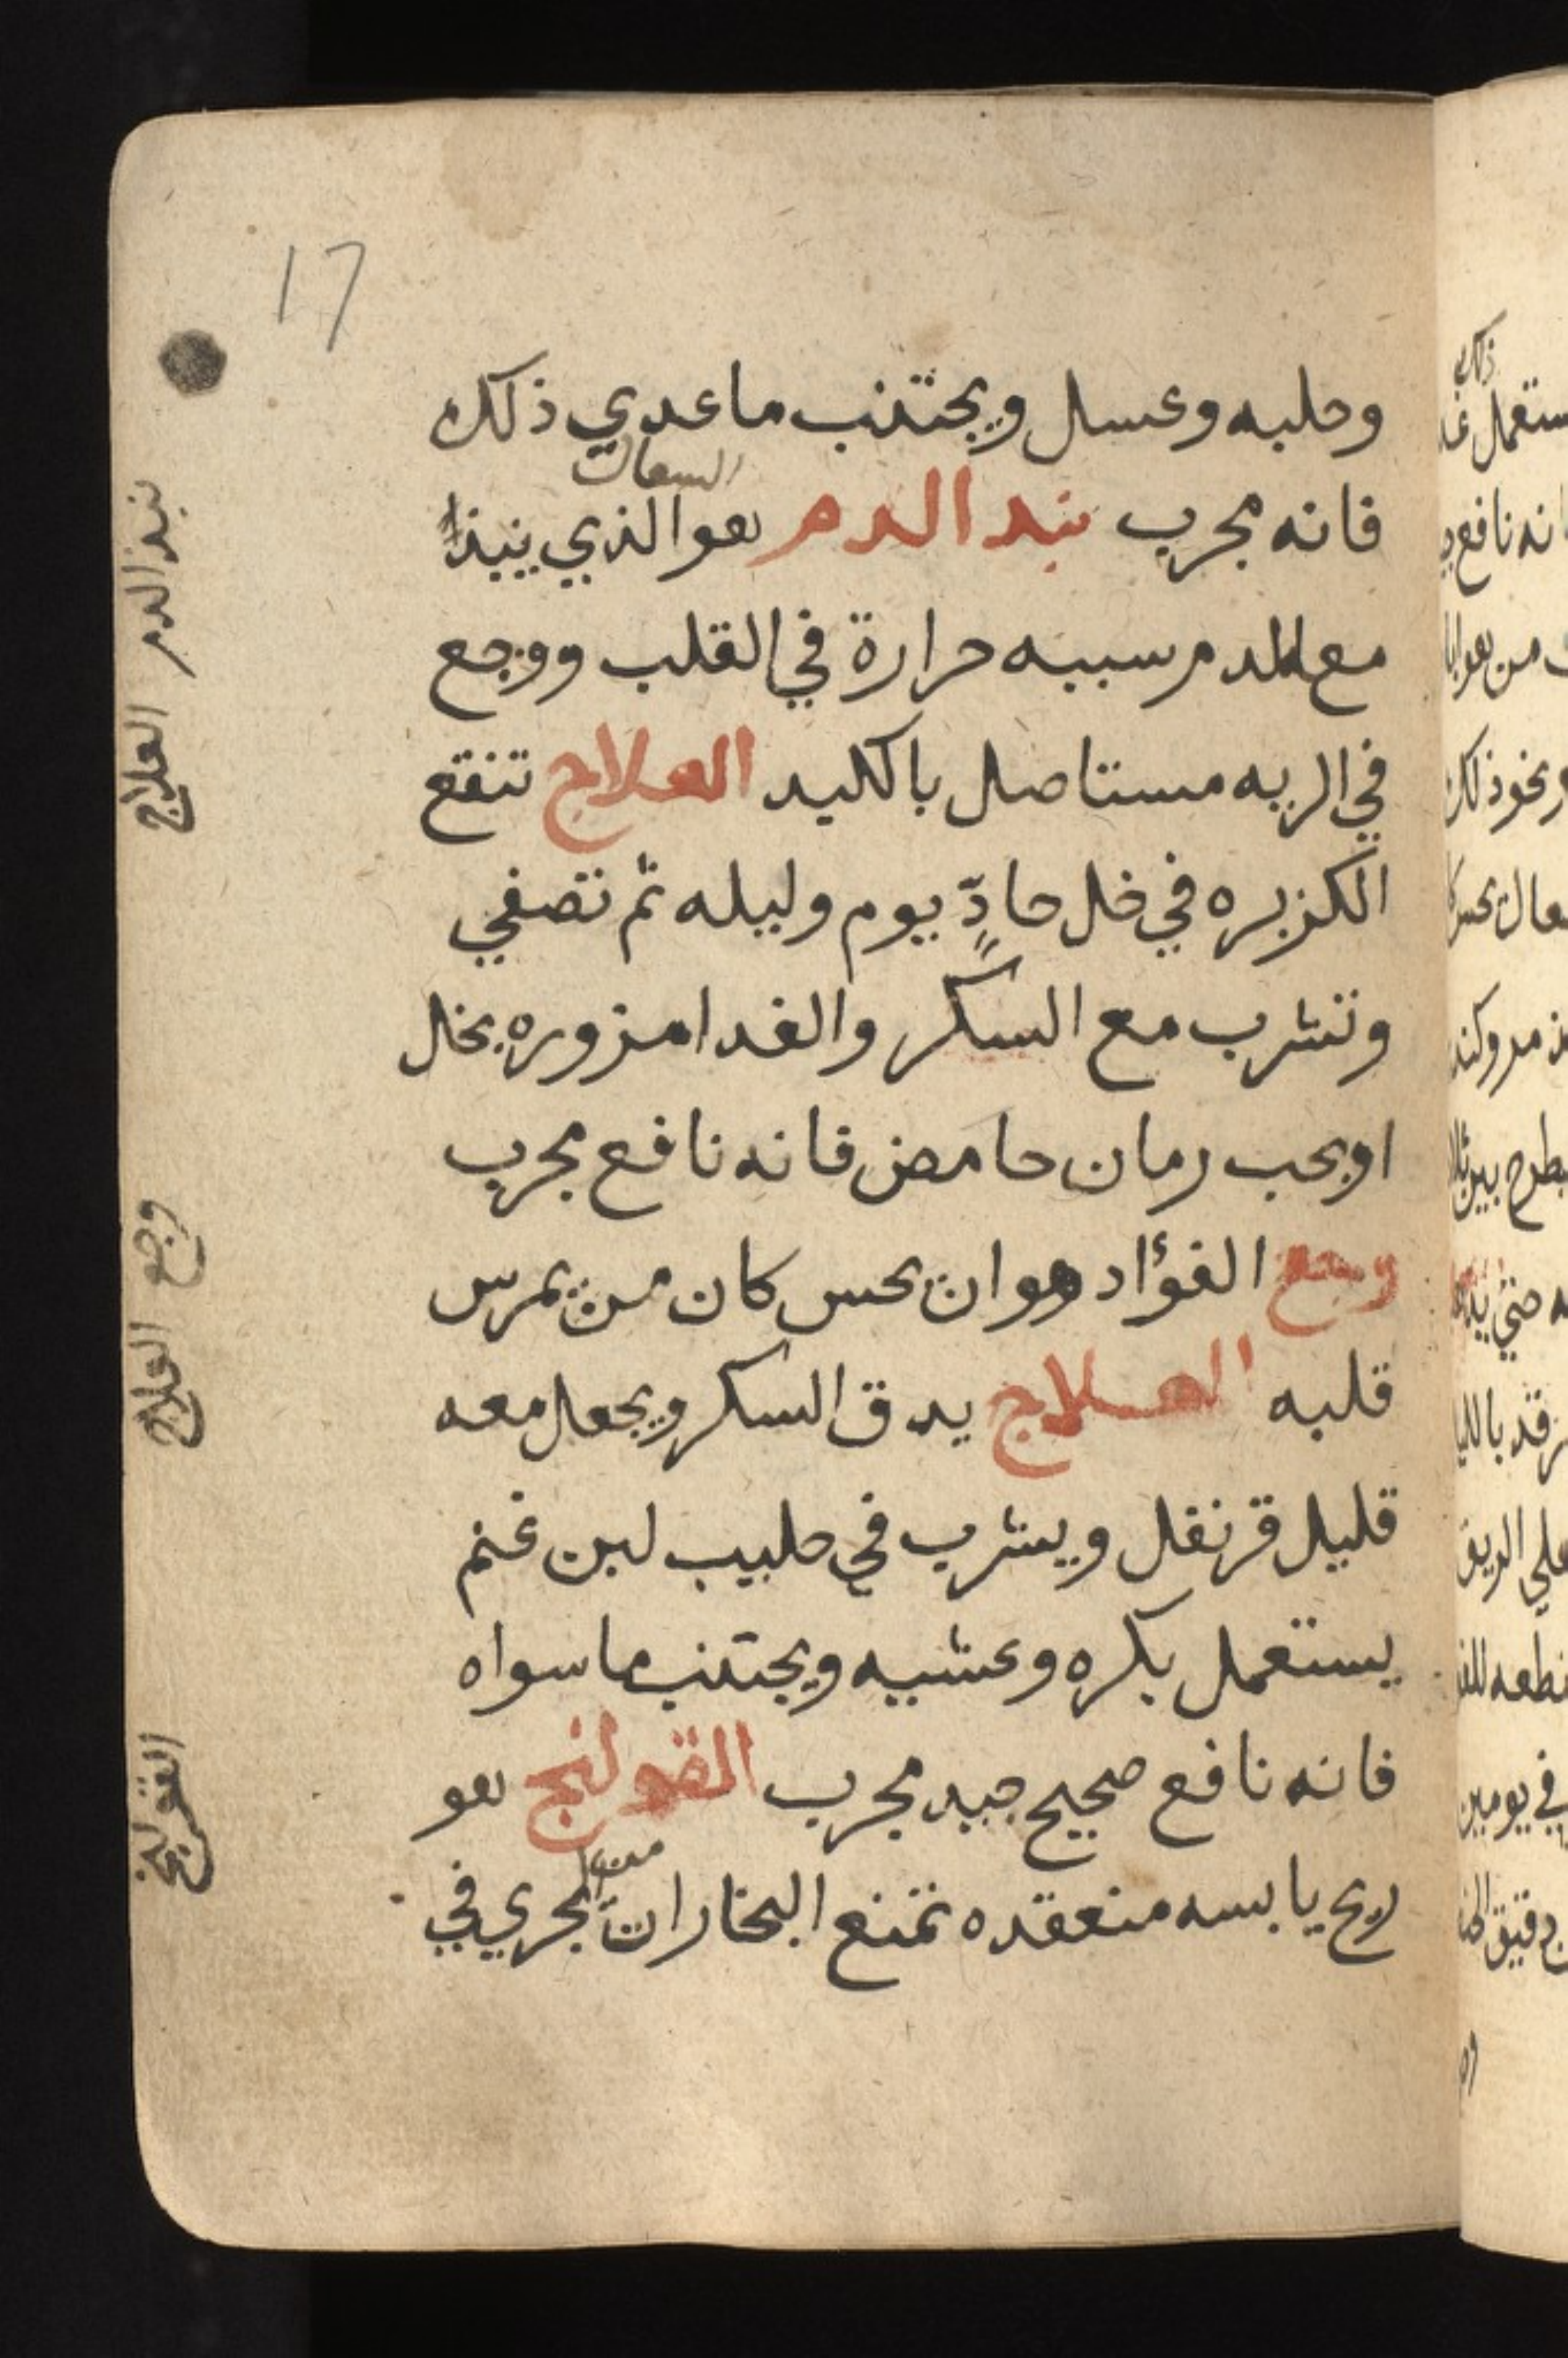 17
وحلبه وعسل ويجتنب ماعدي ذلك
السعال
فانه مجرب نبد الدم هو الذي ينبذ
مع الدم سببه حرارة في القلب ووجع
في الريه مستاصل بالكليد العلاج تنقع
الكزبره في خل حادٍّ يوم وليله ثم تصفي
وتشرب مع السكر والغدا مزوره بخل
اوبحب رمان حامض فانه نافع مجرب
وجع الفؤاد هو ان يحس كان من يمرس
قلبه العلاج يدق السكر ويجعل معه
قليل قرنفل ويشرب في حليب لبن غنم
يستعمل بكره وعشيه ويجتنب ماسواه
فانه نافع صحيح جيد مجرب القولنج هو
ريح يابسه منعقده تمنع البخاران من الجري في
نبد الدم العلاج
وجع العلاج
القولنج